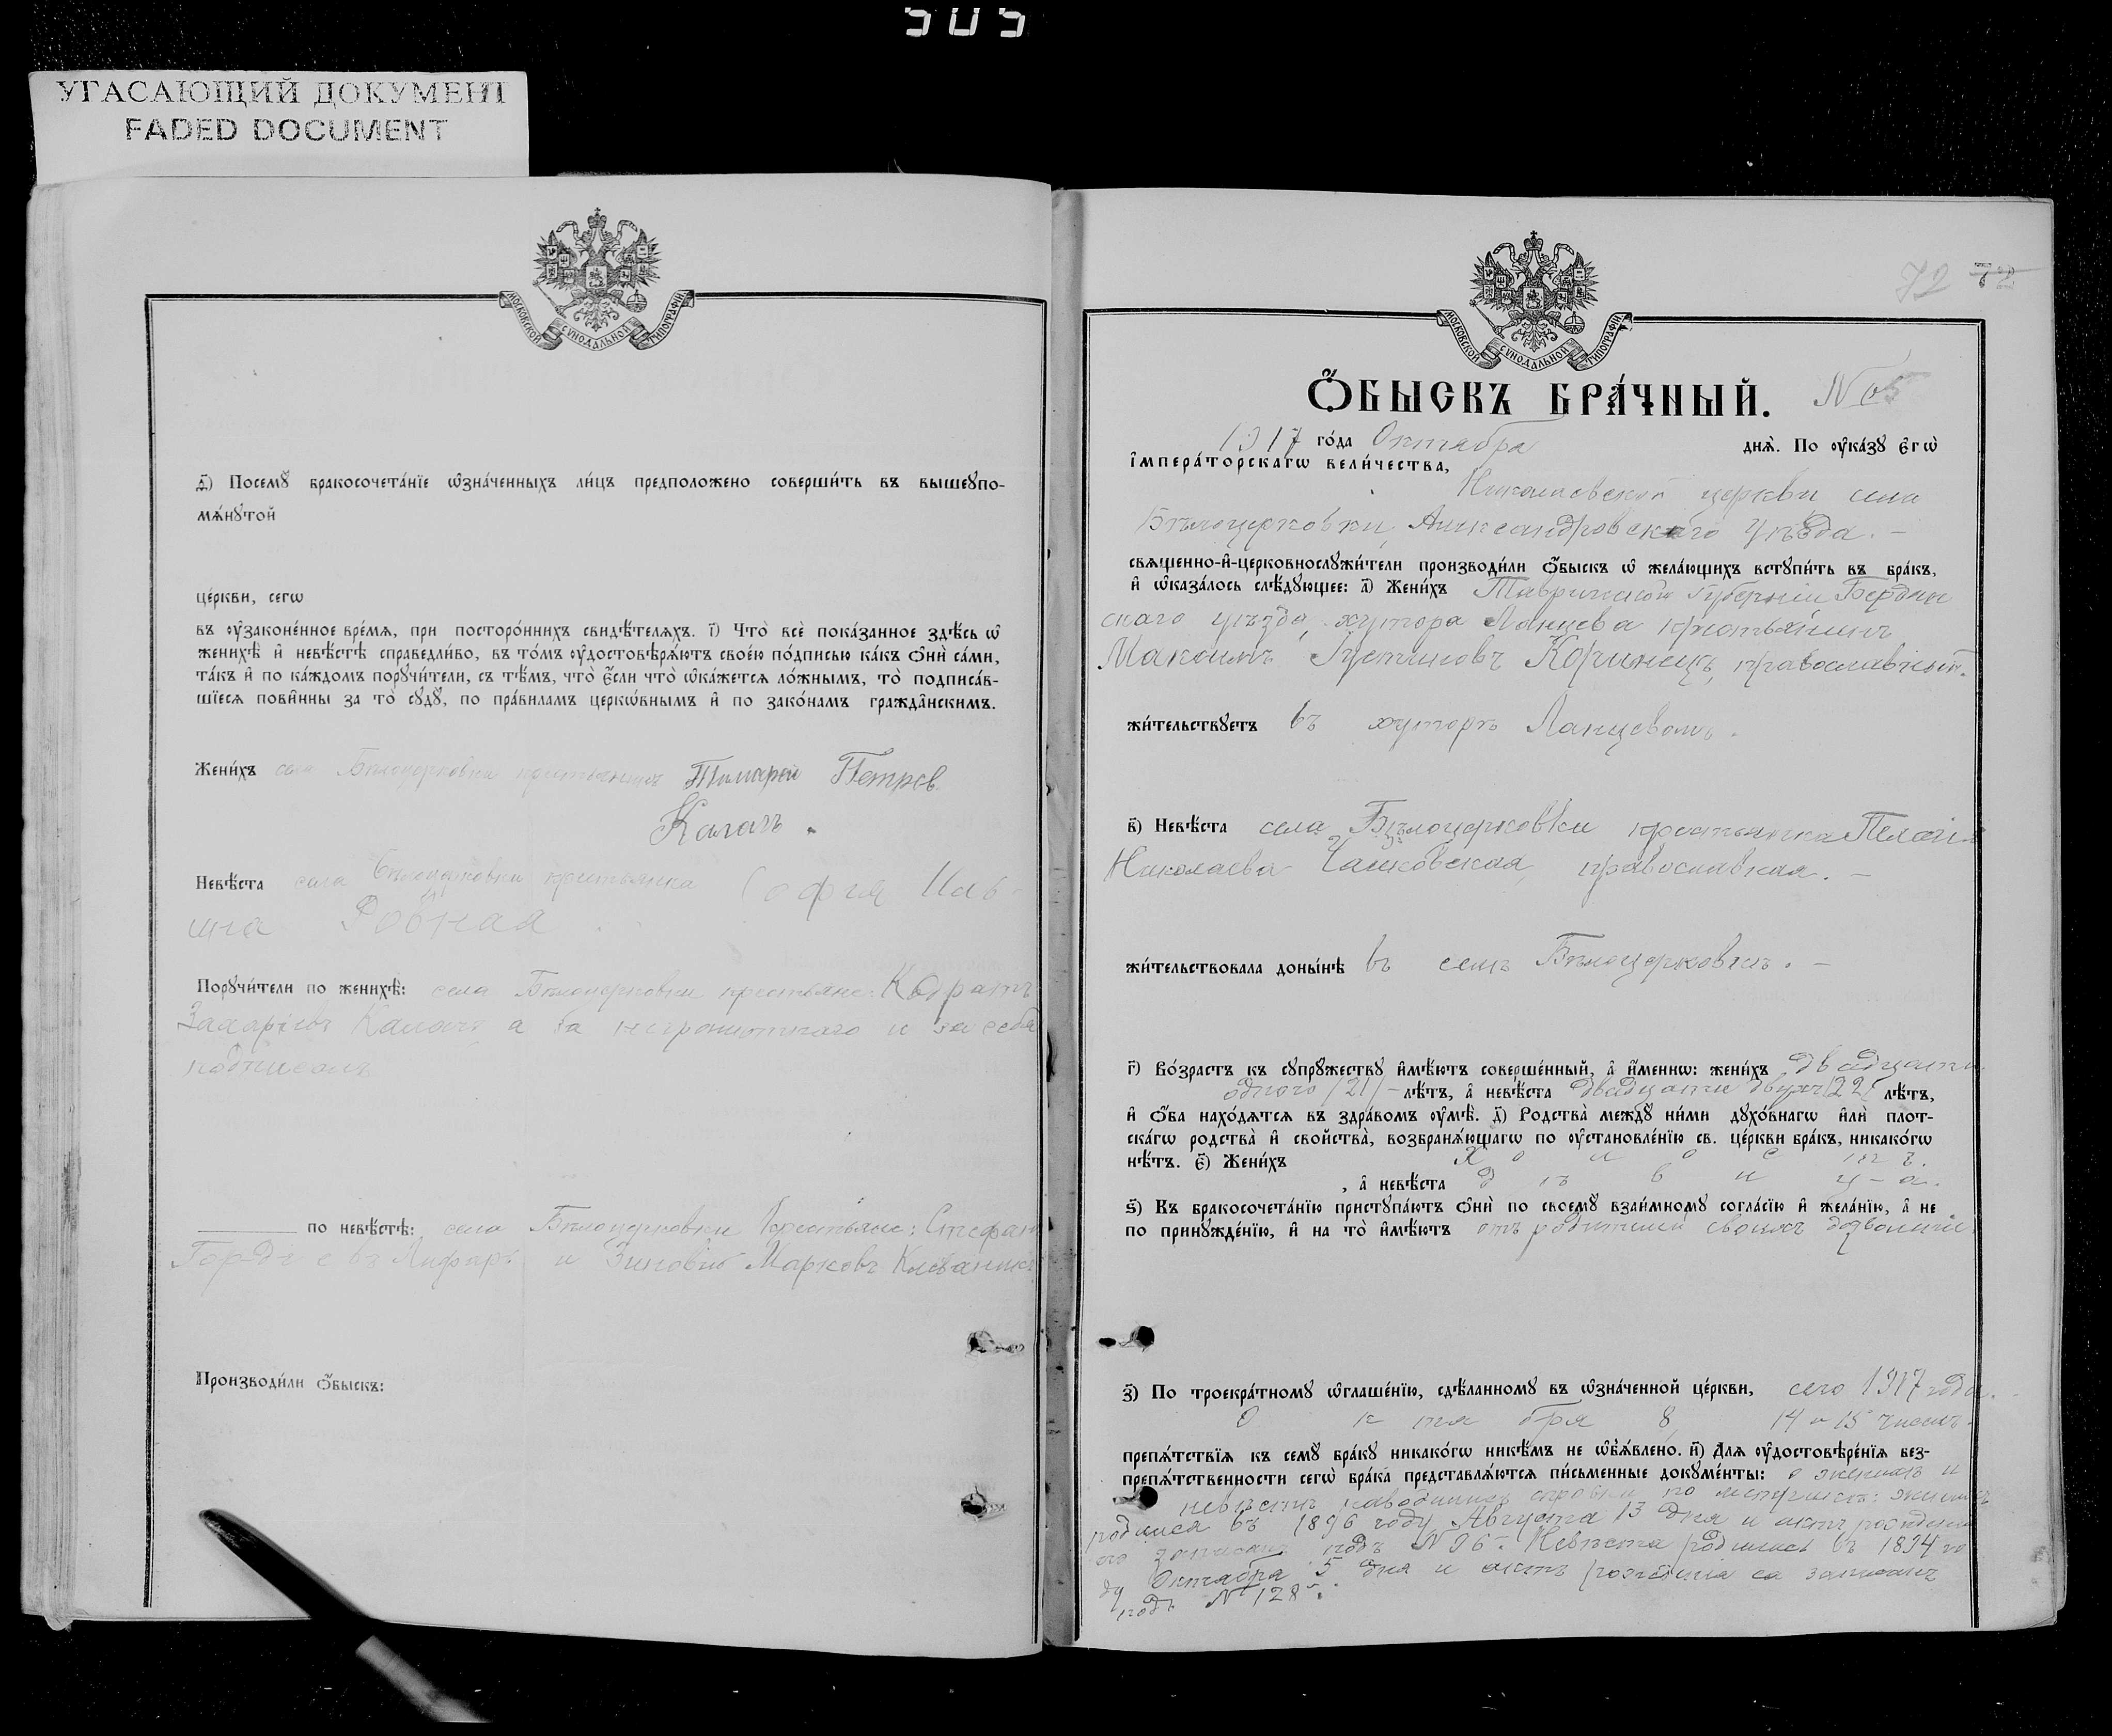 505
УГАСАЮЩИЙ ДОКУМЕНТ
FADED DOCUMENT
МОСКОВСКОЙ СѴНОДАЛЬНОЙ ТИПОГРАФІИ
д҃і) Посемꙋ̀ бракосочета́нїе ѡ҆зна́ченныхъ ли́цъ предположено соверши́ть въ вышеꙋпо-
мѧ́нꙋтой
це́ркви, сегѡ
въ ᲂу҆законе́нное вре́мѧ, при посторо́ннихъ свидѣ́телѧхъ. і҃) Что̀ всѐ пока́занное здѣ́сь ѡ҆
женихѣ̀ и҆ невѣ́стѣ справедли́во, въ то́мъ ᲂу҆достовѣрѧ́ютъ свое́ю по́дписью ка́къ ѻ҆нѝ са́ми,
та́къ и҆ по ка́ждомъ порꙋчи́тели, съ тѣ́мъ, что̀ є҆́сли что̀ ѡ҆ка́жетсѧ ло́жнымъ, то̀ подписа́в-
шїесѧ пови́нны за то̀ сꙋдꙋ̀, по пра́виламъ церко́внымъ и҆ по зако́намъ гражда́нскимъ.
Жени́хъ села Бѣлоцерковки крестьянинъ Тимофей Петров
Калачъ.
Невѣ́ста села Бѣлоцерковки крестьянка Софія Иль-
ина Ровная
Порꙋчи́тели по женихѣ̀: села Бѣлоцерковки крестьяне:
Захаріевъ Калачъ а за неграмотнаго и за себя
подписалъ
по невѣ́стѣ: села Бѣлоцерковки крестьяне: Стефанъ
и Зиновій Марковъ
Производи́ли ѻ҆́быскъ:
МОСКОВСКОЙ СѴНОДАЛЬНОЙ ТИПОГРАФІИ
72
Ѻ҆́БЫСКЪ БРА́ЧНЫЙ. N 65
1917 го́да Октября днѧ̀. По ᲂу҆ка́зꙋ є҆гѡ̀
і҆мпера́торскагѡ вели́чества,
Николаевской церкви села
Бѣлоцерковки, Александровскаго уѣзда. -
свѧще́нно-и҆-церковнослꙋжи́тели производи́ли ѻ҆́быскъ ѡ҆ жела́ющихъ встꙋпи́ть въ бра́къ,
и҆ ѡ҆каза́лось слѣ́дꙋющее: а҃) Жени́хъ Таврической губерніи Бердян
скаго уѣзда, хутора Ланцева крестьянинъ
Максимъ Іустиновъ Коринецъ, православный.
жи́тельствꙋетъ въ хуторѣ Ланцевомъ.
в҃) Невѣ́ста села Бѣлоцерковки крестьянка Пелагія
Николаева Чайковская, православная. -
жи́тельствовала доны́нѣ въ селѣ Бѣлоцерковкѣ. -
г҃) Во́зрастъ къ сꙋпрꙋ́жествꙋ и҆мѣ́ютъ соверше́нный, а҆ и҆́меннѡ: жени́хъ двадцати
одного /21/ - лѣ́тъ, а҆ невѣ́ста двадцати двухъ /22/ лѣ́тъ,
и҆ ѻ҆́ба нахо́дѧтсѧ въ здра́вомъ ᲂу҆мѣ̀. д҃) Родства̀ междꙋ̀ ни́ми дꙋхо́внагѡ и҆лѝ плот-
ска́гѡ родства̀ и҆ свойства̀, возбранѧ́ющагѡ по ᲂу҆становле́нїю св. це́ркви бра́къ, никако́гѡ
нѣ́тъ. є҃) Жени́хъ холостъ.
, а҆ невѣ́ста дѣвица.
ѕ҃) Къ бракосочета́нїю пристꙋпа́ютъ ѻ҆нѝ по своемꙋ̀ взаи́мномꙋ согла́сїю и҆ жела́нїю, а҆ не
по принꙋжде́нїю, и҆ на то̀ и҆мѣ́ютъ отъ родителей своихъ дозволеніе.
з҃) По троекра́тномꙋ ѡ҆глаше́нїю, сдѣ́ланномꙋ въ ѡ҆зна́ченной це́ркви, сего 1917 года.
Октября 8, 14 и 15 числъ.
препѧ́тствїѧ къ семꙋ̀ бра́кꙋ никако́гѡ никѣ́мъ не ѡ҆б̾ѧ́влено. и҃) Длѧ ᲂу҆достовѣре́нїѧ без-
препѧ́тственности сегѡ̀ бра́ка представлѧ́ютсѧ пи́сьменные докꙋме́нты: о женихѣ и
невѣстѣ наводились справки по метрикѣ: женихъ
родился въ 1896 году Августа 13 дня и актъ рожденія
его записанъ подъ N 96. Невѣста родилась въ 1894 го
ду Октября 5 дня и актъ рожденія ея записанъ
подъ N 128.